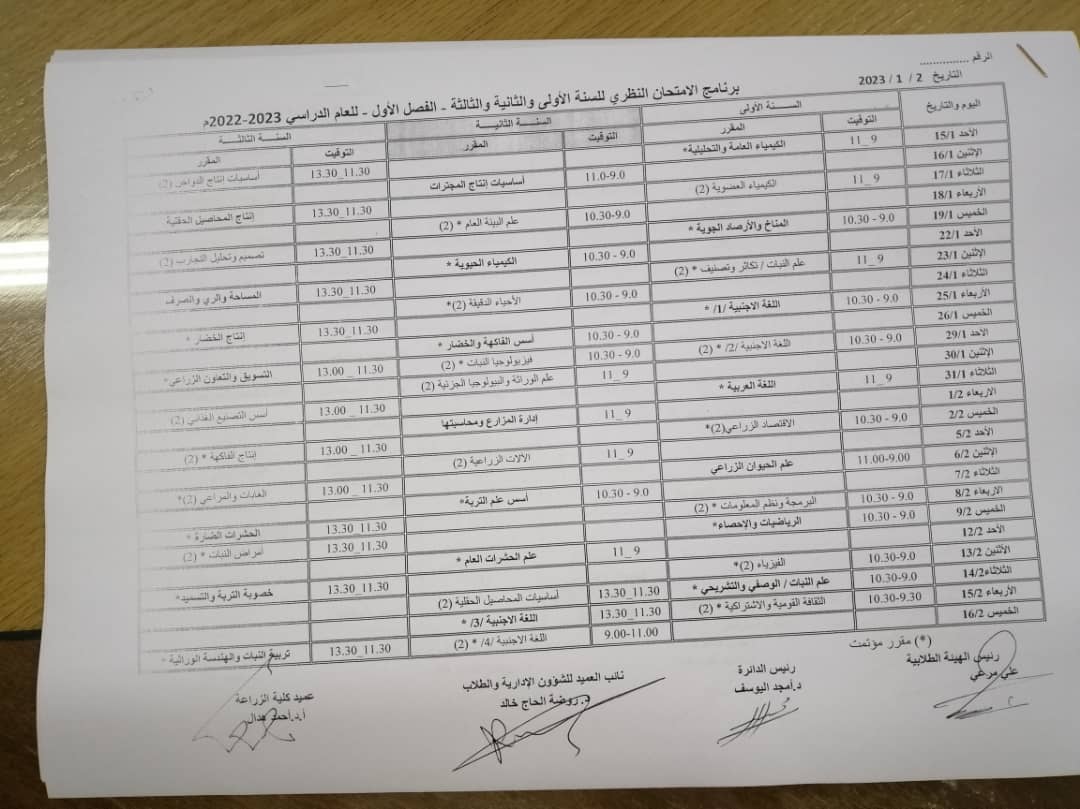 الرقم ...............
التاريخ 2 / 1 / 2023
برنامج الامتحان النظري للسنة الأولى والثانية والثالثة - الفصل الأول - للعام الدراسي 2023-2022م
اليوم والتاريخ السنة الأولى السنة الثانية السنة الثالثة
التوقيت المقرر التوقيت المقرر التوقيت المقرر
الأحد 15/1 9 _11 الكيمياء العامة والتحليلية* 11.30_13.30 أساسيات إنتاج الدواجن (2)
الإثنين 16/1 9.0-11.0 أساسيات إنتاج المجترات
الثلاثاء 17/1 9 _11 الكيمياء العضوية (2) 11.30_13.30 إنتاج المحاصيل الحقلية
الاربعاء 18/1 9.0-10.30 علم البيئة العام * (2)
الخميس 19/1 9.0 - 10.30 المناخ والأرصاد الجوية * 11.30_13.30 تصميم وتحليل التجارب (2)
الأحد 22/1 9.0 - 10.30 الكيمياء الحيوية *
الإثنين 23/1 9 _11 علم النبات / تكاثر وتصنيف * (2) 11.30_13.30 المساحة والري والصرف
الثلاثاء 24/1 9.0 - 10.30 الأحياء الدقيقة (2)*
الأربعاء 25/1 9.0 - 10.30 اللغة الاجنبية /1/ * 11.30_13.30 إنتاج الخضار *
الخميس 26/1 9.0 - 10.30 أسس الفاكهة والخضار *
الأحد 29/1 9.0 - 10.30 اللغة الاجنبية /2/ * (2) 9.0 - 10.30 فيزيولوجيا النبات * (2) 11.30 _ 13.00 التسويق والتعاون الزراعي*
الإثنين 30/1 9 _11 علم الوراثة والبيولوجيا الجزئية (2)
الثلاثاء 31/1 9 _11 اللغة العربية * 11.30 _ 13.00 أسس التصنيع الغذائي (2)
الاربعاء 1/2 9 _11 إدارة المزارع ومحاسبتها
الخميس 2/2 9.0 - 10.30 الاقتصاد الزراعي(2)* 11.30 _ 13.00 إنتاج الفاكهة * (2)
الأحد 5/2 9 _11 الآلات الزراعية (2)
الإثنين 6/2 9.00-11.00 علم الحيوان الزراعي 11.30 _ 13.00 الغابات والمراعي (2)*
الثلاثاء 7/2 9.0 - 10.30 أسس علم التربة*
الاربعاء 8/2 9.0 - 10.30 البرمجة ونظم المعلومات * (2) 11.30_13.30 الحشرات الضارة *
الخميس 9/2 9.0 - 10.30 الرياضيات والإحصاء* 11.30_13.30 أمراض النبات * (2)
الأحد 12/2 9 _11 علم الحشرات العام *
الأثنين 13/2 9.0-10.30 الفيزياء (2)* 11.30_13.30 خصوبة التربة والتسميد*
الثلاثاء14/2 9.0-10.30 علم النبات / الوصفي والتشريحي * 11.30_13.30 أساسيات المحاصيل الحقلية (2)
الأربعاء 15/2 9.30-10.30 الثقافة القومية والاشتراكية * (2) 11.30_13.30 اللغة الاجنبية /3/ *
الخميس 16/2 11.00-9.00 اللغة الاجنبية /4/ * (2) 11.30_13.30 تربية النبات والهندسة الوراثية *
(*) مقرر مؤتمت
رئيس الهيئة الطلابية رئيس الدائرة نائب العميد للشؤون الإدارية والطلاب عميد كلية الزراعة
علي مرعي د.أمجد اليوسف د. روضة الحاج خالد أ.د.أحمد هدال